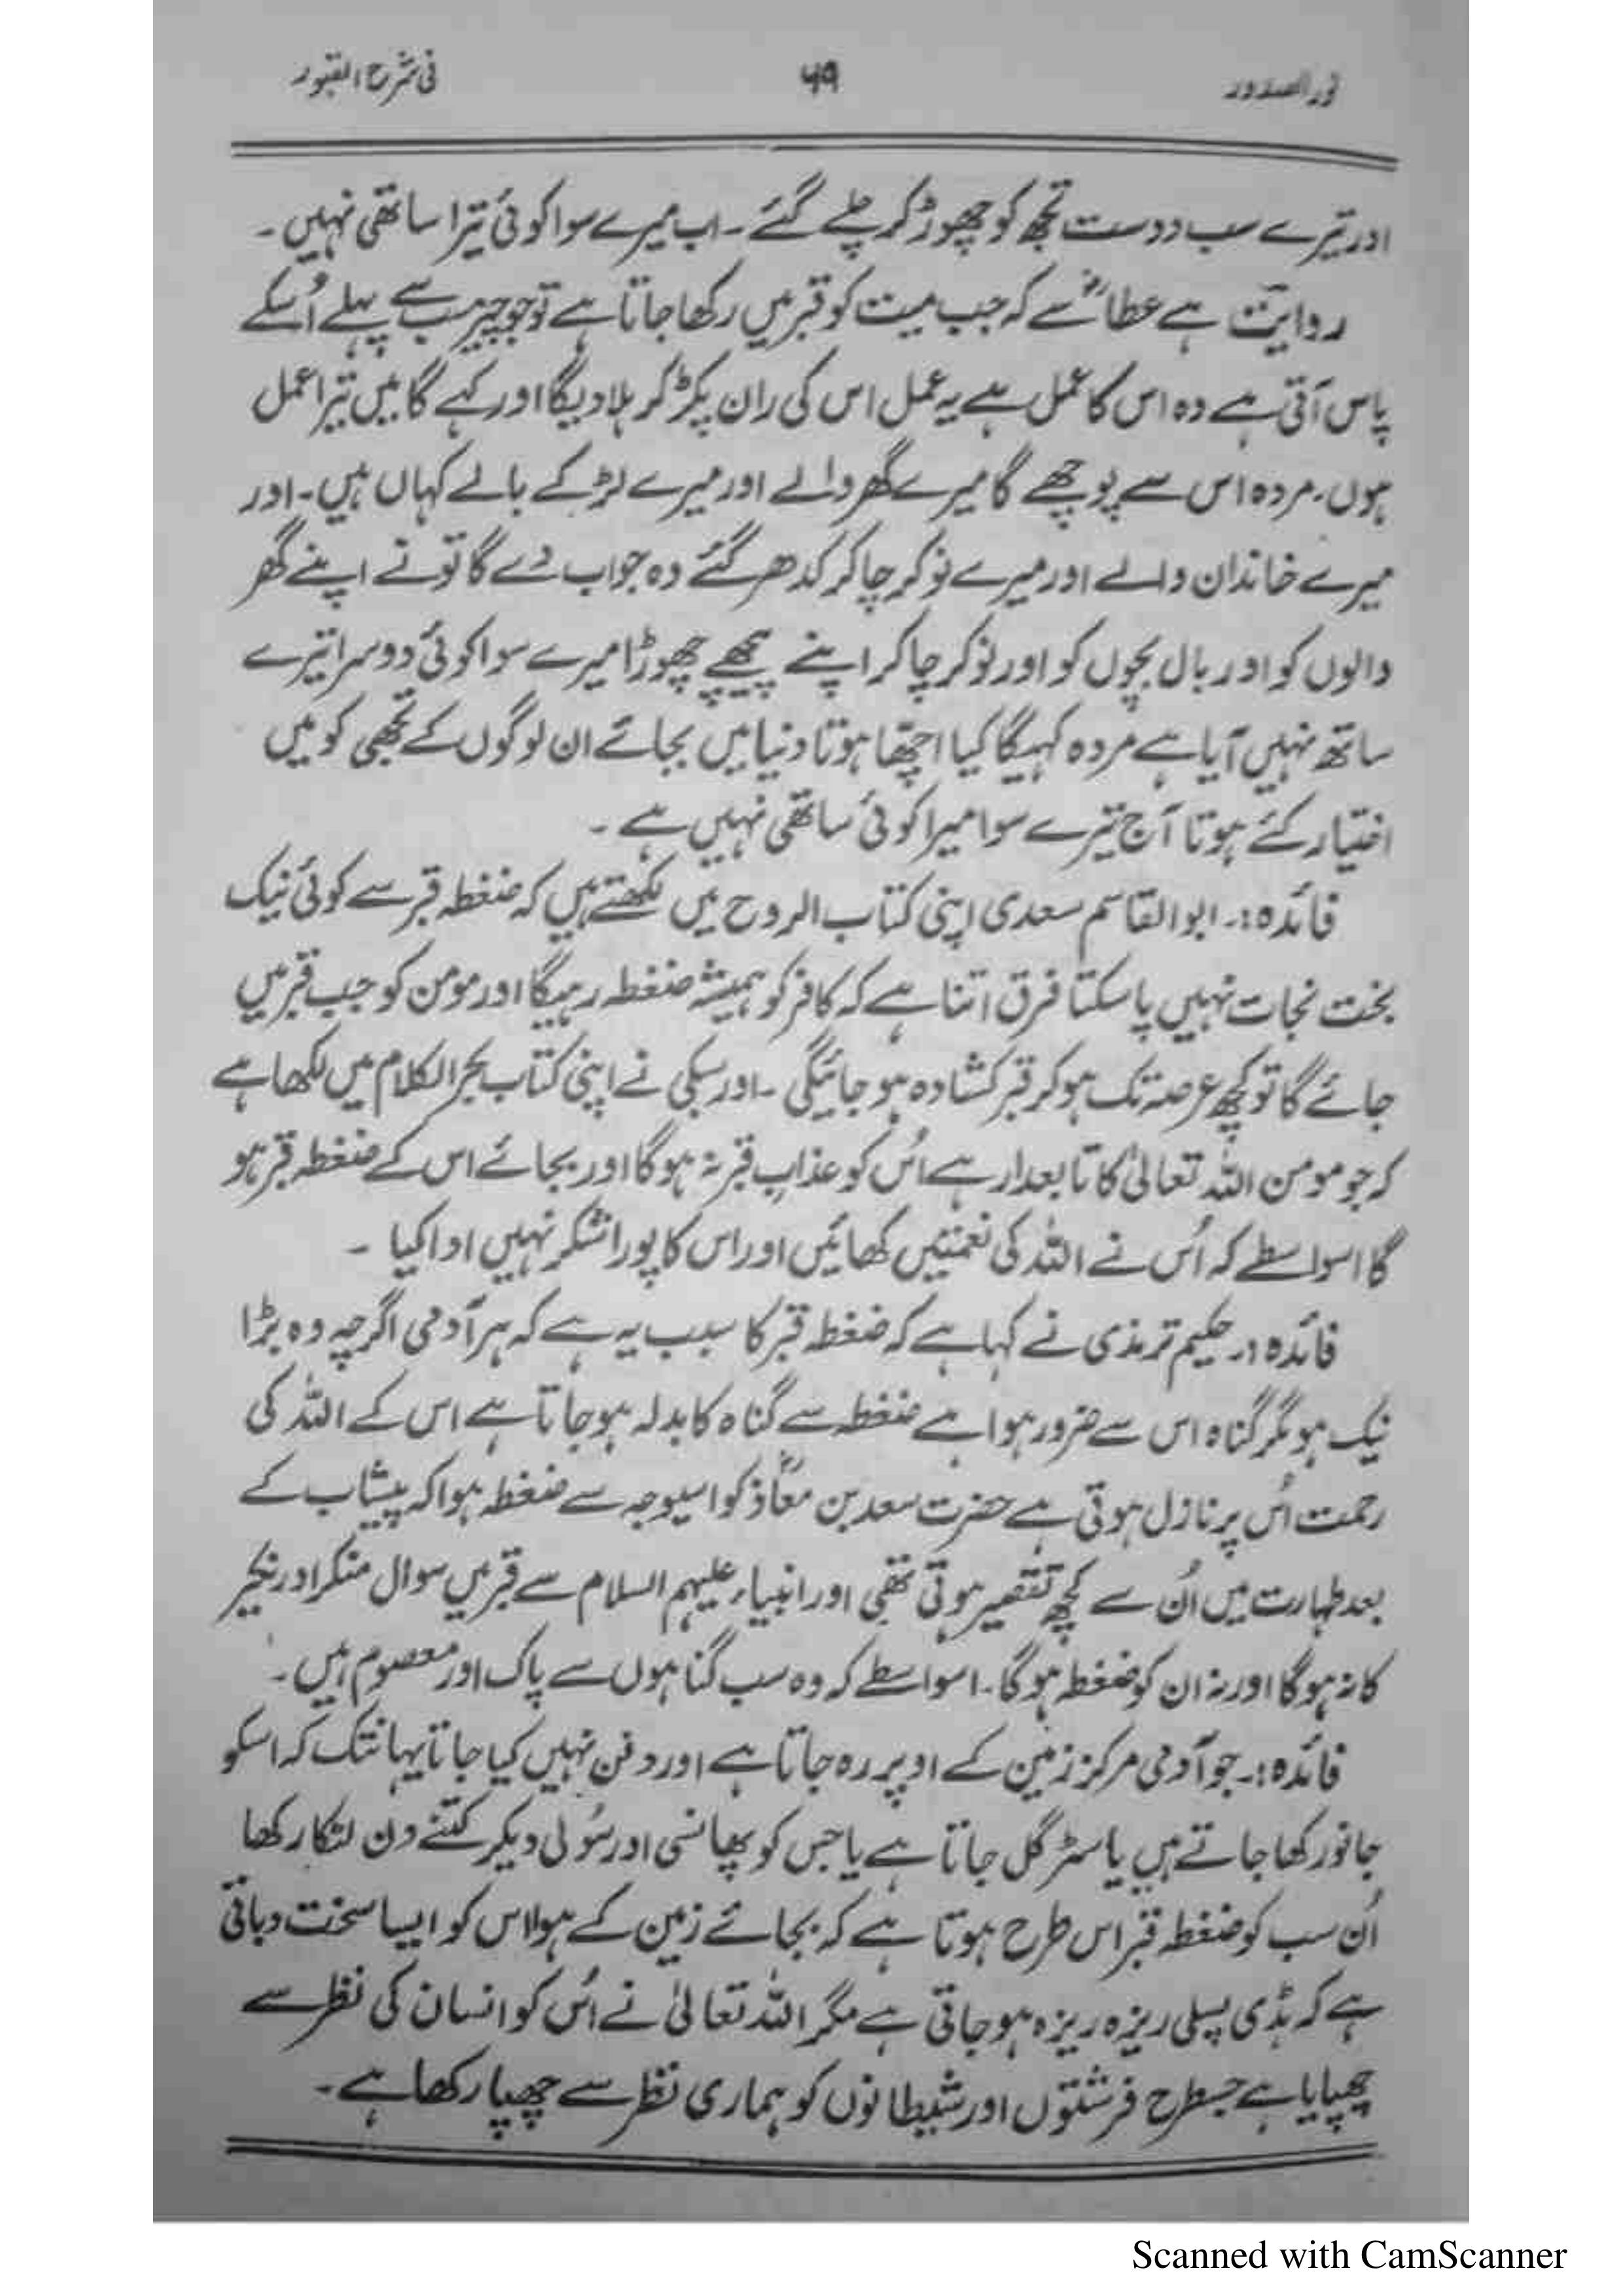 نور الصدور ۵۹ فی شرح القبور
اور تیرے سب دوست تجھ کو چھوڑ کر چلے گئے ۔ اب میرے سوا کوئی تیرا ساتھی نہیں ۔
روایت ہے عطاؒ سے کہ جب میت کو قبر میں رکھا جاتا ہے تو جو چیز سب سے پہلے اُسکے
پاس آتی ہے وہ اس کا عمل ہے یہ عمل اس کی ران پکڑ کر ہلا دیگا اور کہے گا میں تیرا عمل
ہوں۔ مردہ اس سے پوچھے گا میرے گھر والے اور میرے لڑکے بالے کہاں ہیں۔ اور
میرے خاندان والے اور میرے نوکر چاکر کدھر گئے وہ جواب دے گا تو نے اپنے گھر
والوں کو اور بال بچوں کو اور نوکر چاکر اپنے پیچھے چھوڑا میرے سوا کوئی دوسرا تیرے
ساتھ نہیں آیا ہے مردہ کہیگا کیا اچھا ہوتا دنیا میں بجائے ان لوگوں کے تجھی کو میں
اختیار کئے ہوتا آج تیرے سوا میرا کوئی ساتھی نہیں ہے ۔
فائدہ:۔ ابو القاسم سعدی اپنی کتاب الروح میں لکھتے ہیں کہ ضغطہ قبر سے کوئی نیک
بخت نجات نہیں پا سکتا فرق اتنا ہے کہ کافر کو ہمیشہ ضغطہ رہیگا اور مومن کو جب قبر میں
جائے گا تو کچھ عرصہ تک ہو کر قبر کشادہ ہو جائیگی ۔ اور سبکی نے اپنی کتاب بحر الکلام میں لکھا ہے
کہ جو مومن اللہ تعالیٰ کا تابعدار ہے اُس کو عذاب قبر نہ ہو گا اور بجائے اس کے ضغطہ قبر ہو
گا اسواسطے کہ اُس نے اللہ کی نعمتیں کھائیں اور اس کا پورا شکر نہیں ادا کیا ۔
فائدہ:۔ حکیم ترمذی نے کہا ہے کہ ضغطہ قبر کا سبب یہ ہے کہ ہر آدمی اگرچہ وہ بڑا
نیک ہو مگر گناہ اس سے ضرور ہوا ہے ضغطہ سے گناہ کا بدلہ ہو جاتا ہے اس کے اللہ کی
رحمت اُس پر نازل ہوتی ہے حضرت سعد بن معاذؓ کو اسیوجہ سے ضغطہ ہوا کہ پیشاب کے
بعد طہارت میں اُن سے کچھ تقصیر ہوتی تھی اور انبیاء علیہم السلام سے قبر میں سوال منکر اور نکیر
کا نہ ہو گا اور نہ ان کو ضغطہ ہو گا ۔ اسواسطے کہ وہ سب گناہوں سے پاک اور معصوم ہیں ۔
فائدہ:۔ جو آدمی مرکز زمین کے اوپر رہ جاتا ہے اور دفن نہیں کیا جاتا یہانتک کہ اسکو
جانور کھا جاتے ہیں یا سڑ گل جاتا ہے یا جس کو پھانسی اور سُولی دیکر کتنے دن لٹکا رکھا
اُن سب کو ضغطہ قبر اس طرح ہوتا ہے کہ بجائے زمین کے ہوا اس کو ایسا سخت دباتی
ہے کہ ہڈی پسلی ریزہ ریزہ ہو جاتی ہے مگر اللہ تعالیٰ نے اُس کو انسان کی نظر سے
چھپایا ہے جسطرح فرشتوں اور شیطانوں کو ہماری نظر سے چھپا رکھا ہے۔
Scanned with CamScanner